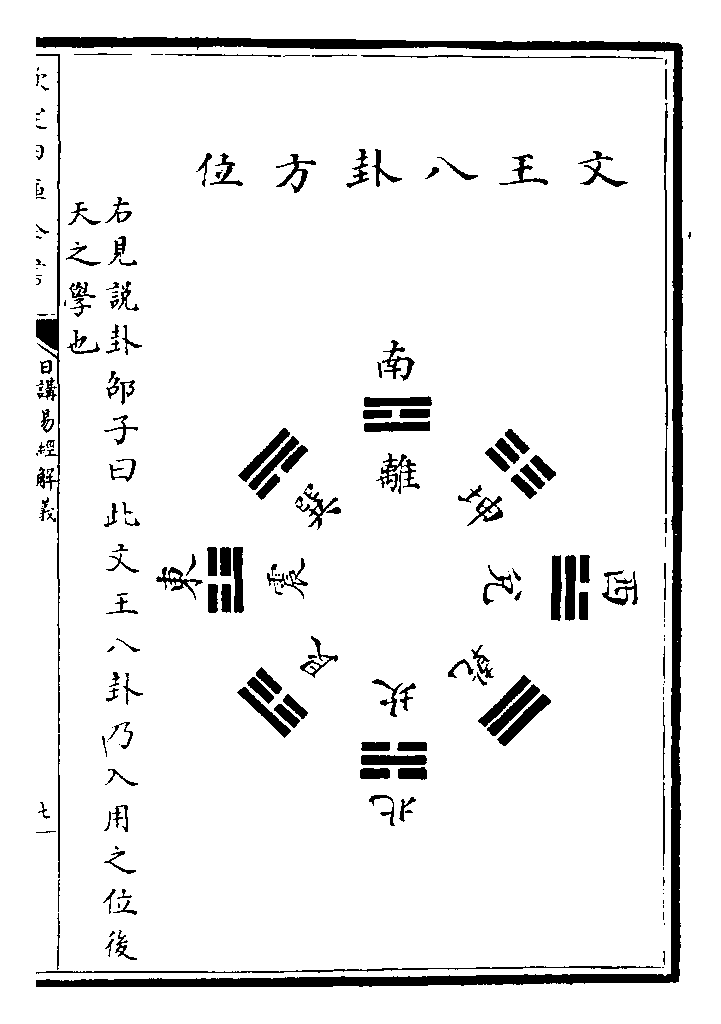 文王八卦方位
南
離
坤
西
兌
乾
坎
北
艮
東
震
巽
右見說卦邵子曰此文王八卦乃入用之位後
天之學也
欽定四庫全書
日講易經解義
七